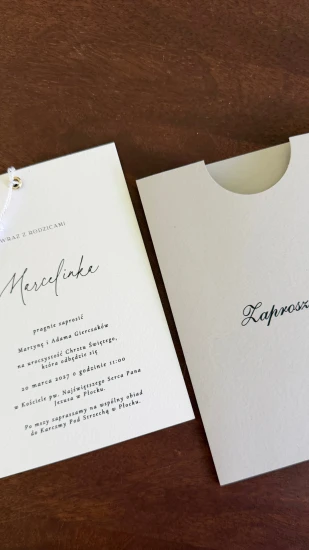 WRAZ Z RODZICAMI
Marcelinka
pragnie zaprosić
Martynę i Adama Gierczaków
na uroczystość Chrztu Świętego,
która odbędzie się
20 marca 2027 o godzinie 11:00
w Kościele pw. Najświętszego Serca Pana
Jezusa w Płocku.
Po mszy zapraszamy na wspólny obiad
do Karczmy Pod Strzechą w Płocku.
Zaprosz